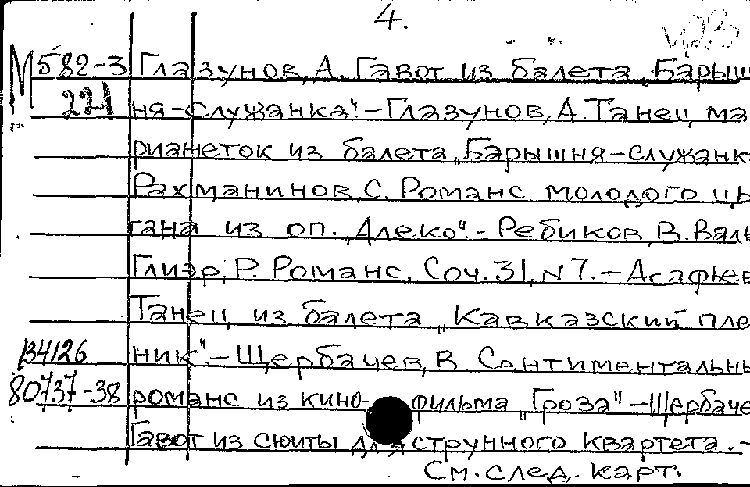 4.
М582-3 Глазунов, А. Гавот из балета „Барыш
221 ня-служанка"-Глазунов, А. Танец ма
рианеток из балета „Барышня-служанк
Рахманинов, С. Романс молодого цы
гана из оп. „Алеко"-Ребиков, В. Валь
Глиэр, Р. Романс, Соч. 31, N7.-Асафьев
Танец из балета „Кавказский пле
В4126 ник"-Щербачев, В. Сантиментальны
80737-38 романс из кино-фильма „Гроза"-Щербаче
Гавот из сюиты для струнного квартета.-
См. след. карт.